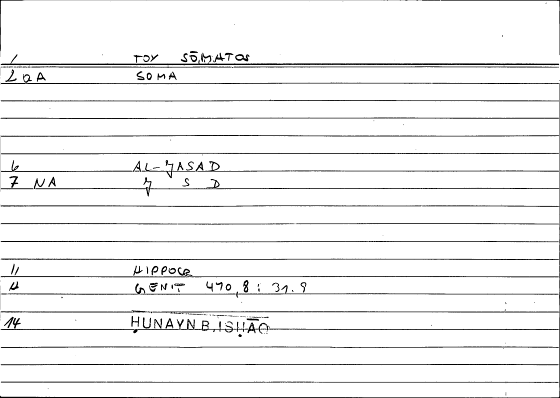 1 TOY SŌMATOS
2 QA SOMA
6 AL-JASAD
7 NA J S D
11 HIPPOCR
GENIT 470,8: 31.9
14 ḤUNAYN B. ISḤĀQ